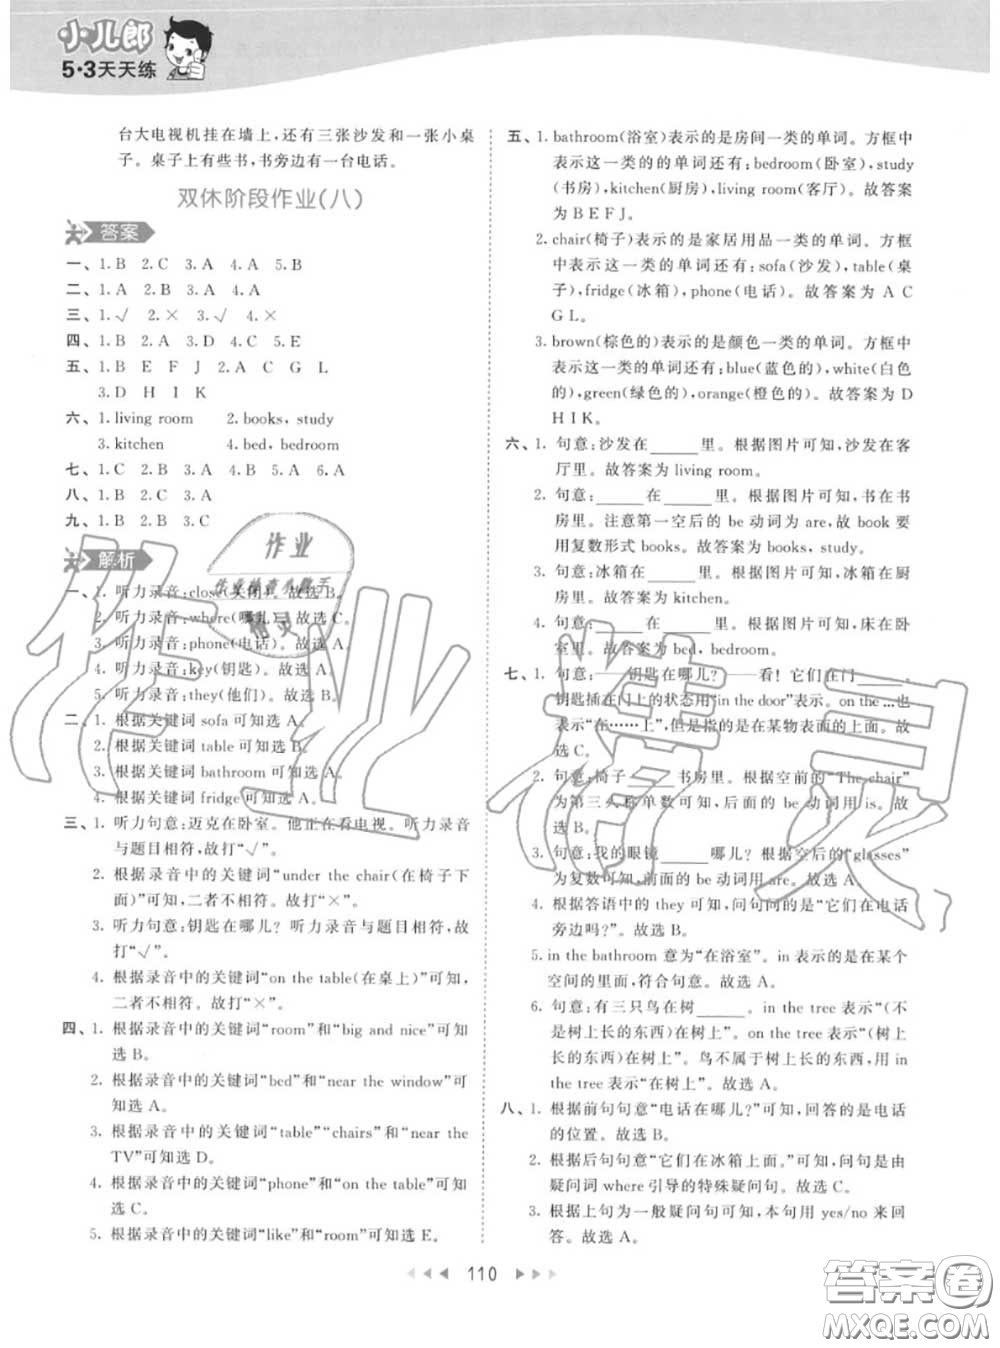 小儿郎
5·3天天练
台大电视机挂在墙上，还有三张沙发和一张小桌
子。桌子上有些书，书旁边有一台电话。
双休阶段作业(八)
答案
一、1.B 2.C 3.A 4.A 5.B
二、1.A 2.B 3.A 4.A
三、1.√ 2.× 3.√ 4.×
四、1.B 2.A 3.D 4.C 5.E
五、1.B E F J 2.A C G L
3.D H I K
六、1.living room 2.books, study
3.kitchen 4.bed, bedroom
七、1.C 2.B 3.A 4.B 5.A 6.A
八、1.B 2.C 3.A
九、1.B 2.B 3.C
解析
一、1. 听力录音:close(关闭)。故选 B。
2. 听力录音:where(哪儿)。故选 C。
3. 听力录音:phone(电话)。故选 A。
4. 听力录音:key(钥匙)。故选 A。
5. 听力录音:they(他们)。故选 B。
二、1. 根据关键词 sofa 可知选 A。
2. 根据关键词 table 可知选 B。
3. 根据关键词 bathroom 可知选 A。
4. 根据关键词 fridge 可知选 A。
三、1. 听力句意:迈克在卧室。他正在看电视。听力录音
与题目相符,故打“√”。
2. 根据录音中的关键词“under the chair(在椅子下
面)”可知,二者不相符。故打“×”。
3. 听力句意:钥匙在哪儿? 听力录音与题目相符,故
打“√”。
4. 根据录音中的关键词“on the table(在桌上)”可知,
二者不相符。故打“×”。
四、1. 根据录音中的关键词“room”和“big and nice”可知
选 B。
2. 根据录音中的关键词“bed”和“near the window”可
知选 A。
3. 根据录音中的关键词“table”“chairs”和“near the
TV”可知选 D。
4. 根据录音中的关键词“phone”和“on the table”可知
选 C。
5. 根据录音中的关键词“like”和“room”可知选 E。
五、1. bathroom(浴室)表示的是房间一类的单词。方框中
表示这一类的的单词还有:bedroom(卧室),study
(书房),kitchen(厨房),living room(客厅)。故答案
为 B E F J。
2. chair(椅子)表示的是家居用品一类的单词。方框
中表示这一类的单词还有:sofa(沙发),table(桌
子),fridge(冰箱),phone(电话)。故答案为 A C
G L。
3. brown(棕色的)表示的是颜色一类的单词。方框中
表示这一类的单词还有:blue(蓝色的),white(白色
的),green(绿色的),orange(橙色的)。故答案为 D
H I K。
六、1. 句意:沙发在______里。根据图片可知,沙发在客
厅里。故答案为 living room。
2. 句意:______在______里。根据图片可知,书在书
房里。注意第一空后的 be 动词为 are,故 book 要
用复数形式 books。故答案为 books, study。
3. 句意:冰箱在______里。根据图片可知,冰箱在厨
房里。故答案为 kitchen。
4. 句意:______在______里。根据图片可知,床在卧
室里。故答案为 bed, bedroom。
七、1. 句意:——钥匙在哪儿? ——看! 它们在门______。
钥匙插在门上的状态用“in the door”表示。on the …也
表示“在……上”,但是指的是在某物表面的上面。故
选 C。
2. 句意:椅子______书房里。根据空前的“The chair”
为第三人称单数可知,后面的 be 动词用 is。故
选 B。
3. 句意:我的眼镜______哪儿? 根据空后的“glasses”
为复数可知,前面的 be 动词用 are。故选 A。
4. 根据答语中的 they 可知,问句问的是“它们在电话
旁边吗?”。故选 B。
5. in the bathroom 意为“在浴室”。in表示的是在某个
空间的里面,符合句意。故选 A。
6. 句意:有三只鸟在树______。in the tree 表示“(不
是树上长的东西)在树上”。on the tree 表示“(树上
长的东西)在树上”。鸟不属于树上长的东西,用 in
the tree 表示“在树上”。故选 A。
八、1. 根据前句句意“电话在哪儿?”可知,回答的是电话
的位置。故选 B。
2. 根据后句句意“它们在冰箱上面。”可知,问句是由
疑问词 where 引导的特殊疑问句。故选 C。
3. 根据上句为一般疑问句可知,本句用 yes/no 来回
答。故选 A。
110
作业
作业检查小助手
精灵
作业精灵
答案卷
MXQE.COM